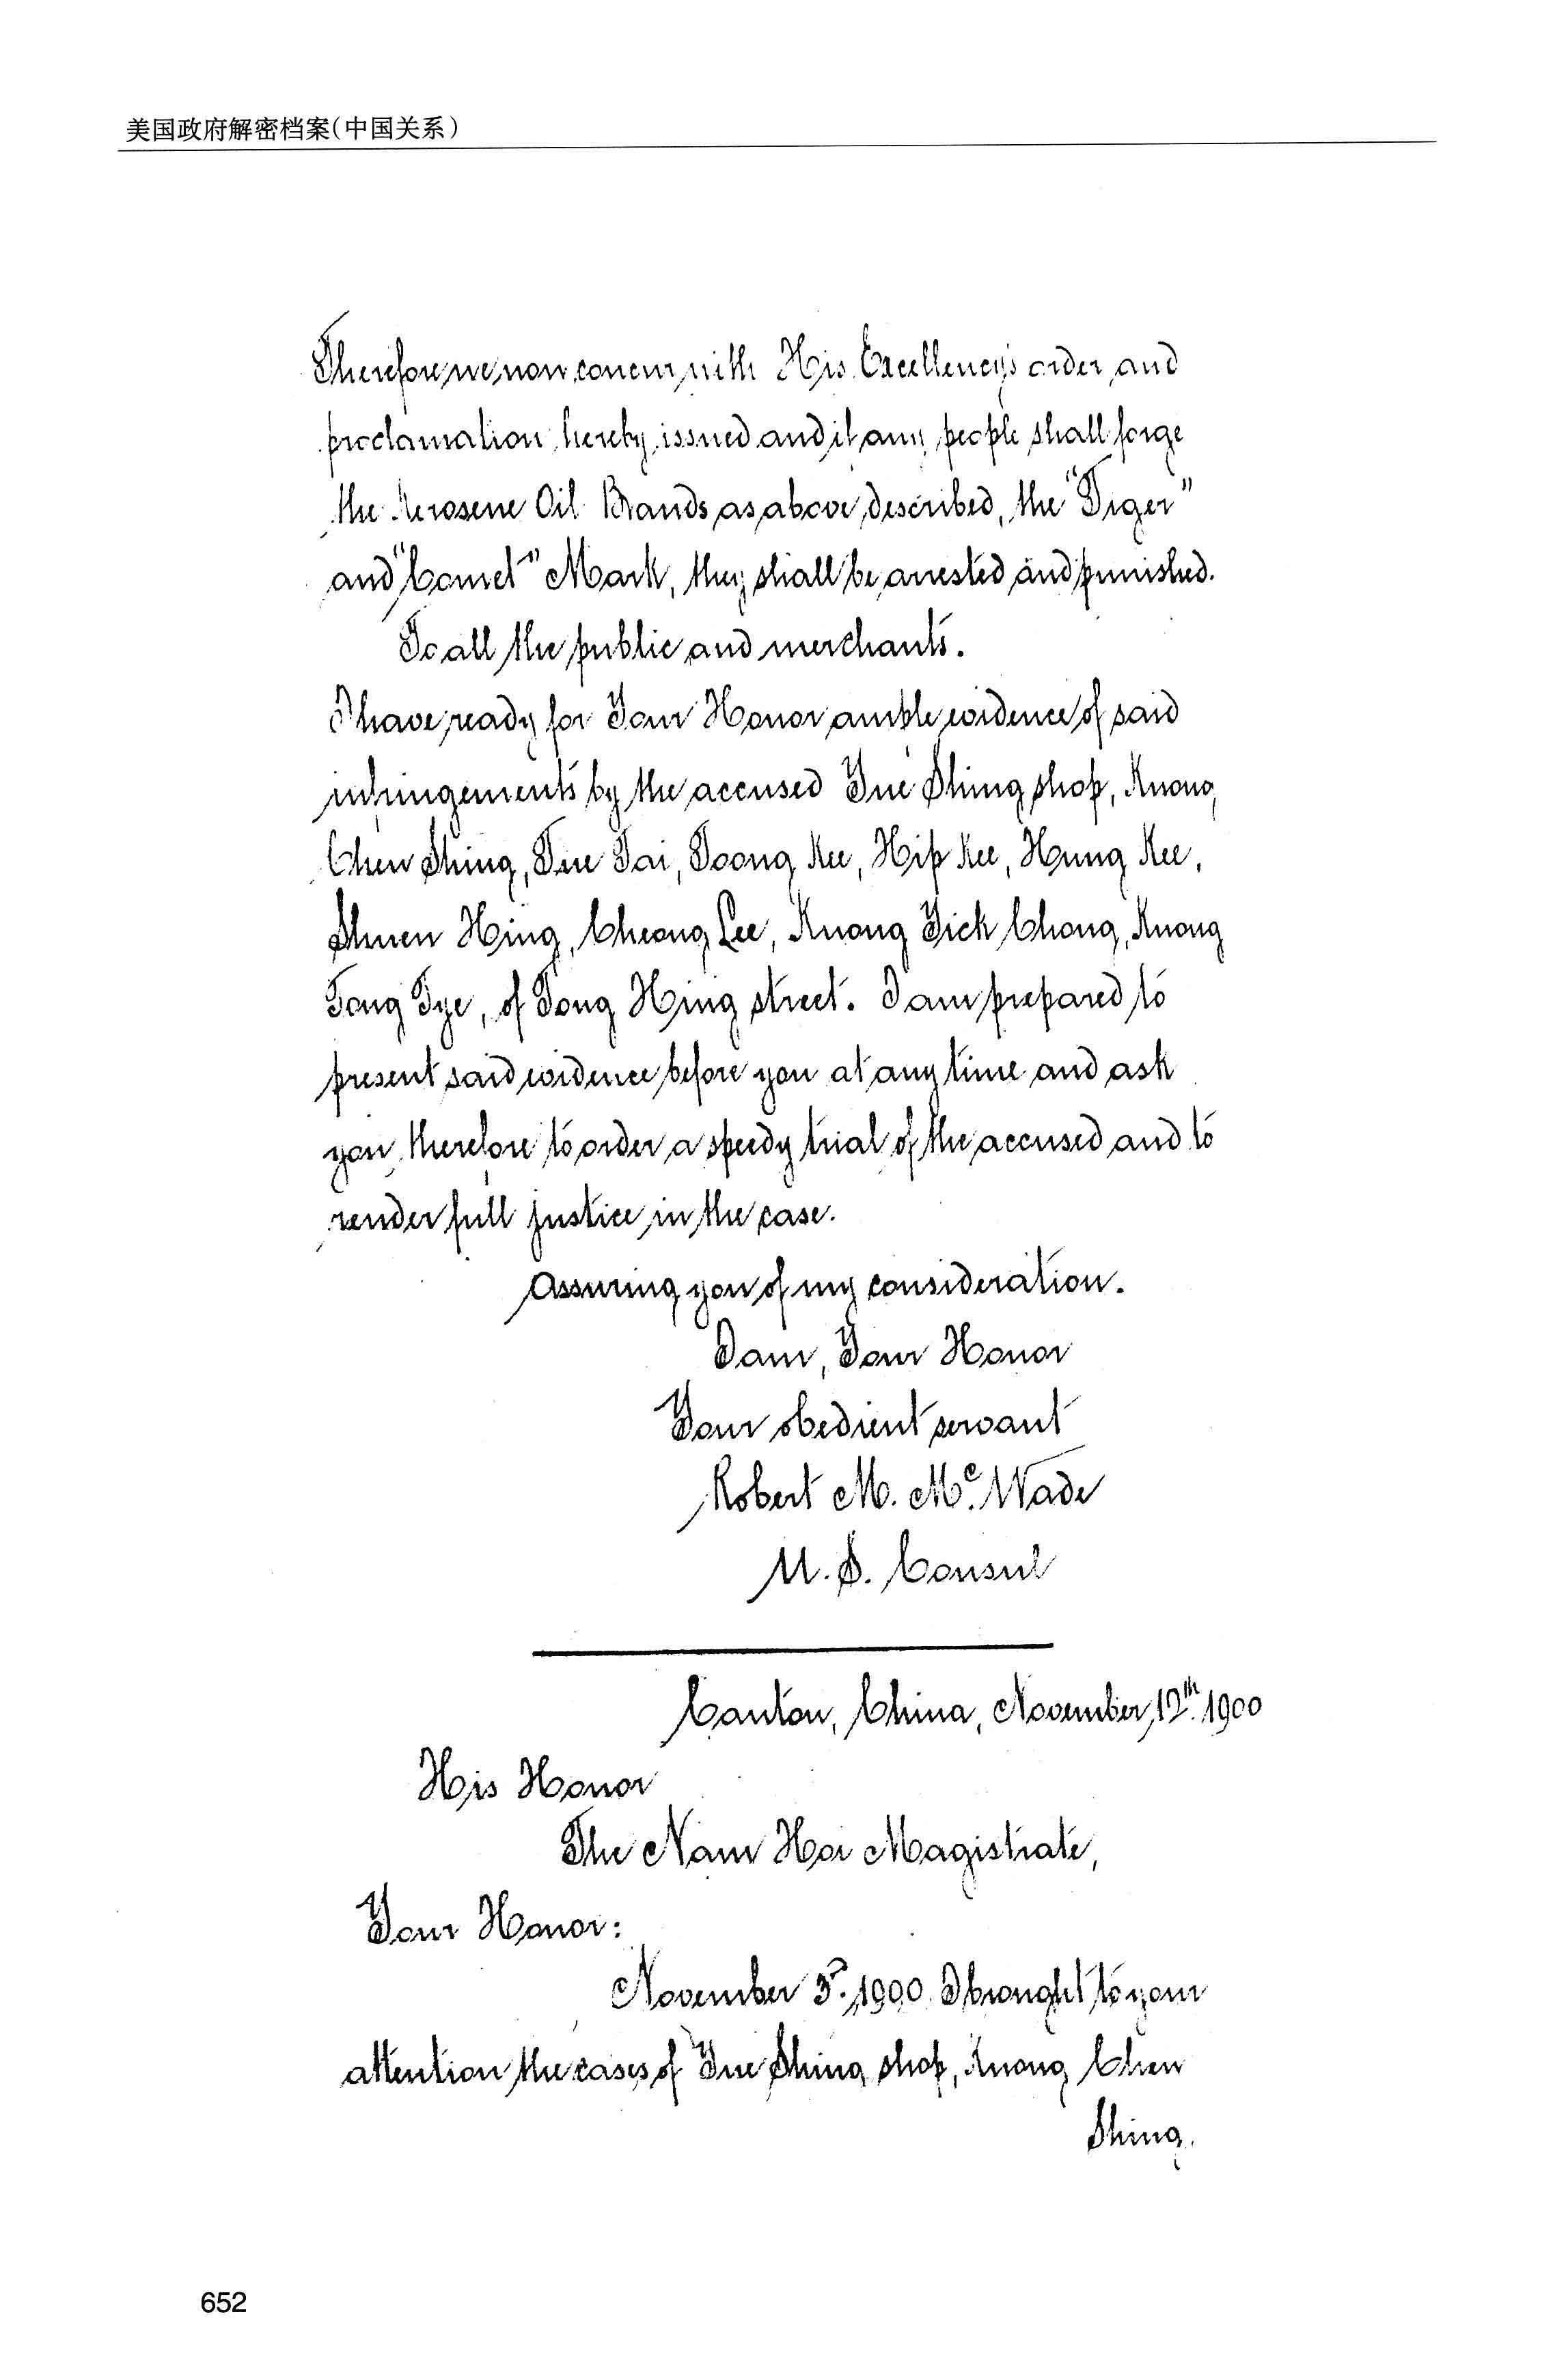 美国政府解密档案(中国关系)
Therefore we now concur with His Excellency's order and
proclamation hereby issued and if any people shall forge
the Kerosene Oil Brands as above described, the "Tiger"
and "Comet" Mark, they shall be arrested and punished.
To all the public and merchants.
I have ready for Your Honor ample evidence of said
infringements by the accused Yue Shing shop, Kwong
Chen Shing, Tsu Tai, Toong Kee, Hip Kee, Hung Kee,
Shuen Hing, Cheong Lee, Kwong Yick Chong, Kwong
Tong Tye, of Tong Hing street. I am prepared to
present said evidence before you at any time and ask
you therefore to order a speedy trial of the accused and to
render full justice in the case.
Assuring you of my consideration.
I am, Your Honor
Your obedient servant
Robert M. McWade
U. S. Consul
Canton, China, November, 12th 1900
His Honor
The Nam Hoi Magistrate,
Your Honor:
November 3d. 1900. I brought to your
attention the cases of Yue Shing shop, Kwong Chen
Shing.
652